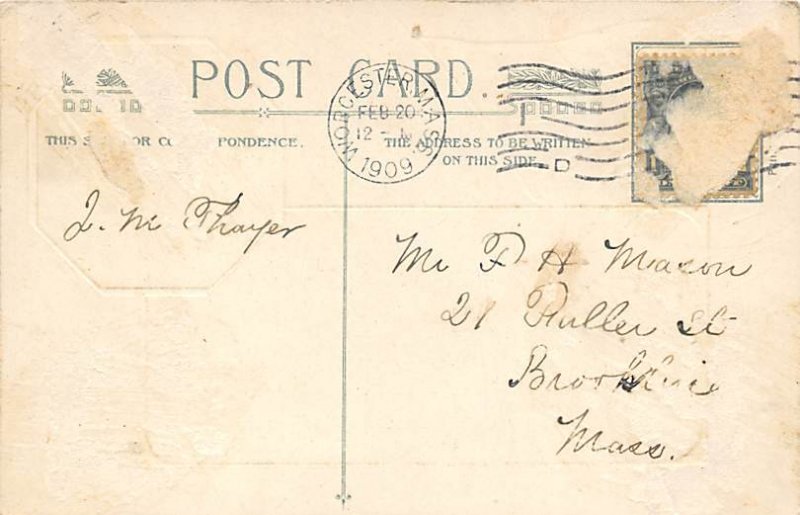 POST CARD
WORCESTER, MASS
FEB 20
12 - M
1909
THIS S OR CO PONDENCE.
THE ADDRESS TO BE WRITTEN
ON THIS SIDE.
D
J. M Thayer
Mr F H Mason
21 Fuller St
Brookline
Mass.